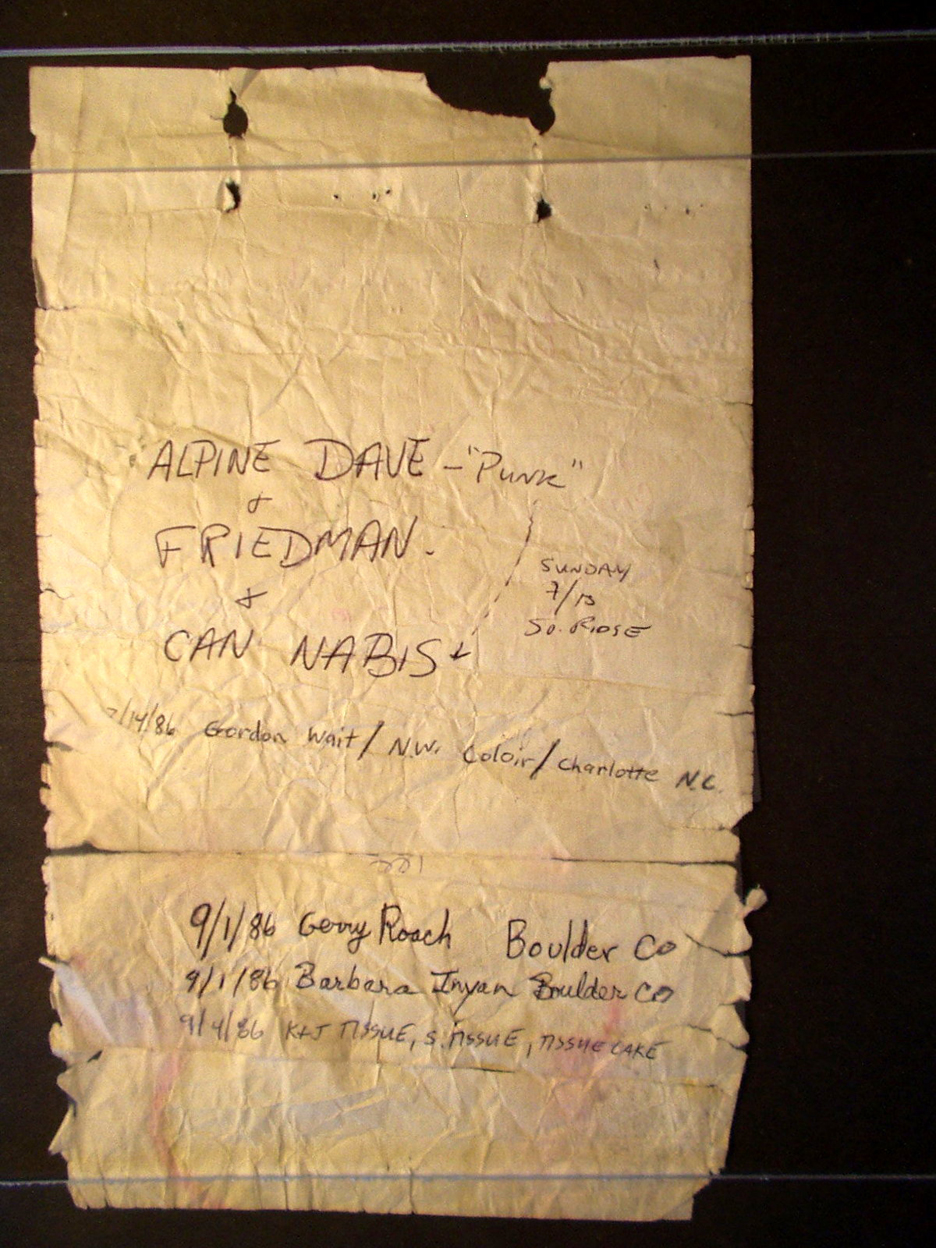 ALPINE DAVE - "PUNK"
&
FRIEDMAN.
&
CAN NABIS
SUNDAY
7/13
SO. RIDGE
7/14/86 Gordon Wait / N.W. Coloir / Charlotte N.C.
9/1/86 Gerry Roach Boulder Co
9/1/86 Barbara Inyan Boulder CO
9/4/86 K&J TISSUE, S. TISSUE, TISSUE LAKE